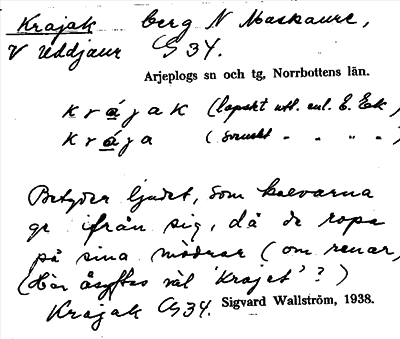 Krajak berg N Maskaure,
V Uddjaur G34.
Arjeplogs sn och tg, Norrbottens län.
krájak (lapskt utt. enl. E. Eek)
krája (svenskt " " " ")
Betyder ljudet, som kalvarna
ge ifrån sig, då de ropa
på sina mödrar (om renar)
(Här åsyftas väl 'krajet'?)
Krajak G34. Sigvard Wallström, 1938.